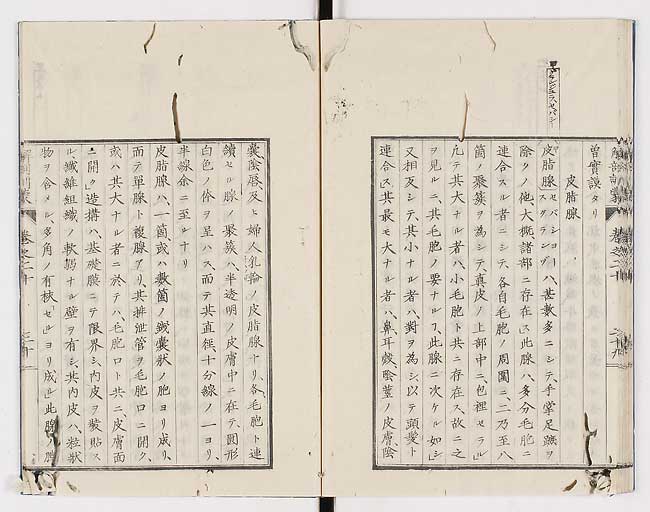 曽實謨タリ
皮脂腺
皮脂腺ハ甚數多ニシテ、手掌足蹠ヲ
除クノ他大概諸部ニ存在ス此腺ハ、多分毛胞ニ
連合スル者ニシテ、各自毛胞ノ周圍ニ、二乃至八
箇ノ聚簇ヲ為シテ、真皮ノ上部中ニ、包裡セラル
凡テ其大ナル者ハ、小毛胞ト共ニ存在ス故ニ之
ヲ見ルニ、其毛胞ノ要ナル丁、此腺ニ次ケル如シ
又相反シテ、其小ナル者ハ、對ヲ為シ、以テ頭髪ト
連合ス其最モ大ナル者ハ、鼻、耳殻、陰莖ノ皮膚、陰
嚢、陰唇及ヒ婦人乳輪ノ皮脂腺ナリ、各毛胞ト連
續セル腺ノ聚簇ハ、半透明ノ皮膚中ニ在テ圓形
白色ノ体ヲ呈ハス、而テ其直徑、十分線ノ一ヨリ、
半線余ニ至ルナリ
皮脂腺ハ、一箇、或ハ數箇ノ嚢状ノ胞ヨリ成リ、
而テ單腺ト複腺アリ、其排泄管ヲ毛胞口ニ開ク、
或ハ其大ナル者ニ於テハ、毛胞口ト共ニ皮膚面
ニ開ク造構ハ、基礎膜ニテ限界シ、内皮ヲ襞貼ス
ル、纖維組織ノ軟弱ナル壁ヲ有シ、其内皮ハ、粒状
物ヲ含メル、多角ノ有核セルヨリ成ル此腺ノ